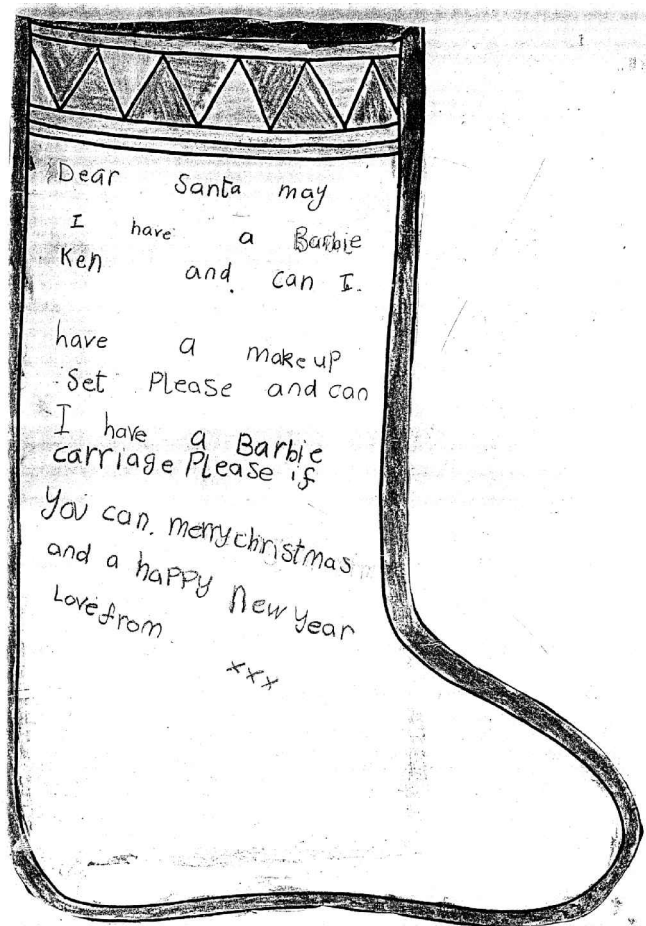 Dear Santa may
I have a Barbie
Ken and can I.
have a make up
Set Please and can
I have a Barbie
carriage Please if
You can. merry christmas
and a haPPy New Year
Love from
xxx